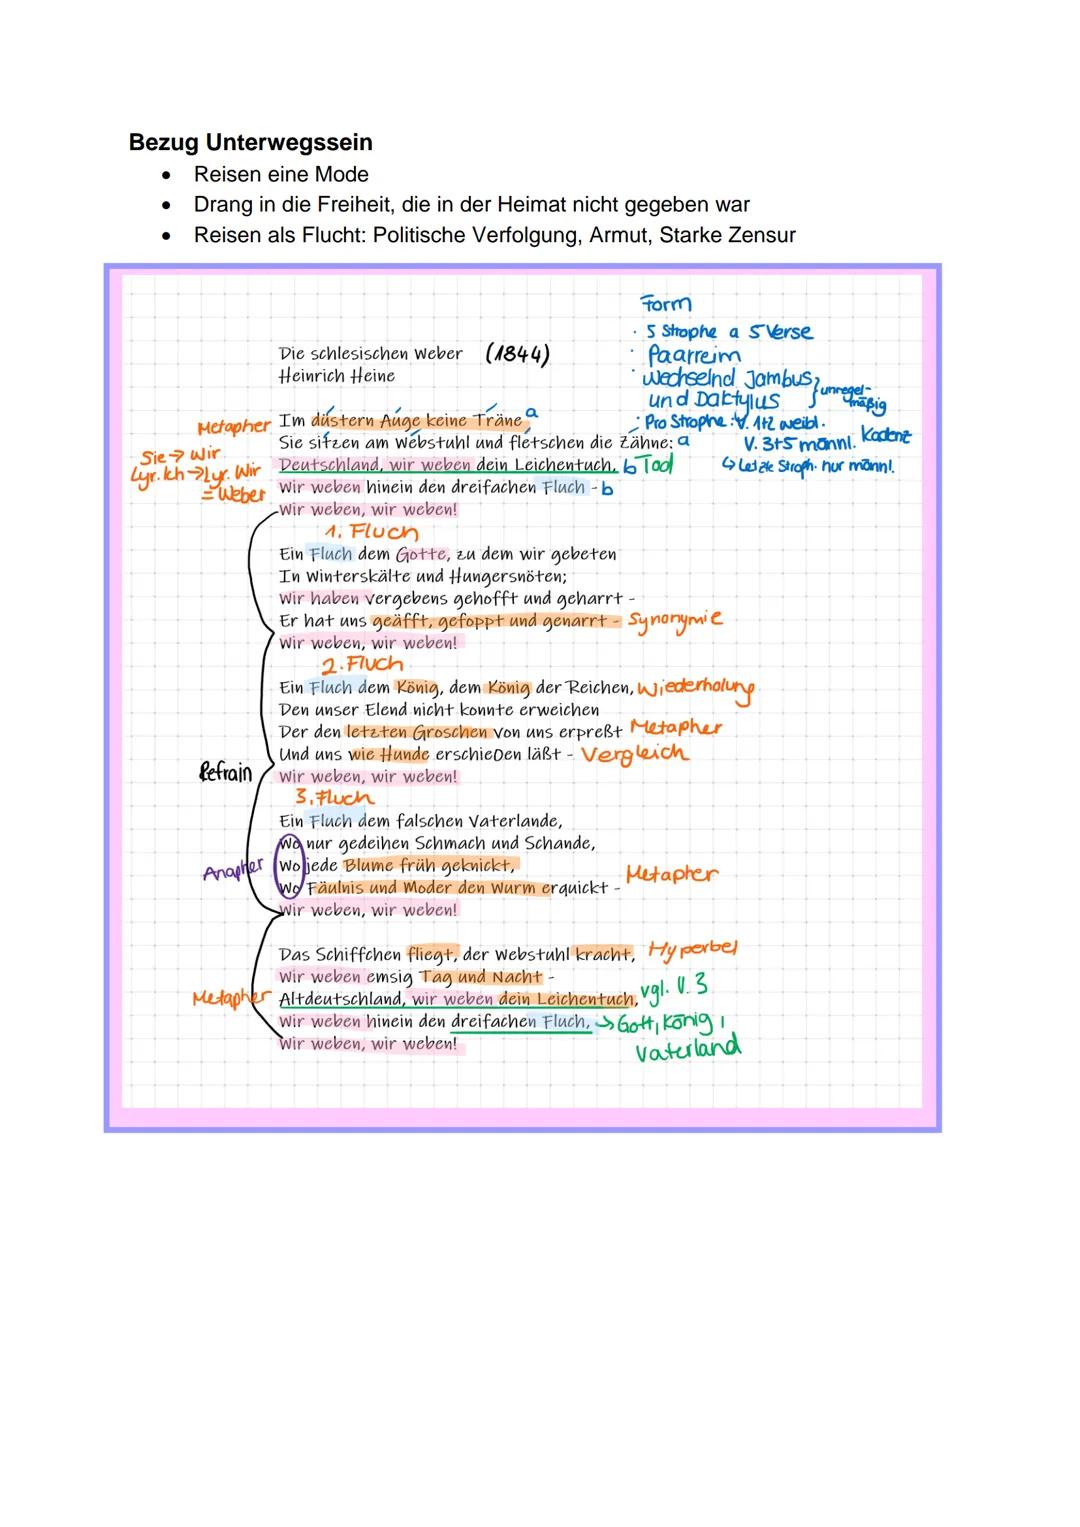 Bezug Unterwegssein
• Reisen eine Mode
• Drang in die Freiheit, die in der Heimat nicht gegeben war
• Reisen als Flucht: Politische Verfolgung, Armut, Starke Zensur
Form
· 5 Strophe a 5 Verse
· Paarreim
· Wechselnd Jambus und Daktylus } unregelmäßig
· Pro Strophe: V. 1+2 weibl.
V. 3+5 männl. Kadenz
↳ Letzte Stroph. nur männl.
Die schlesischen Weber (1844)
Heinrich Heine
Metapher Im düstern Auge keine Träne, a
Sie sitzen am Webstuhl und fletschen die Zähne: a
Sie → Wir
Lyr. Ich → Lyr. Wir
= Weber
Deutschland, wir weben dein Leichentuch, b Tod
Wir weben hinein den dreifachen Fluch - b
Wir weben, wir weben!
1. Fluch
Ein Fluch dem Gotte, zu dem wir gebeten
In Winterskälte und Hungersnöten;
Wir haben vergebens gehofft und geharrt -
Er hat uns geäfft, gefoppt und genarrt - Synonymie
Wir weben, wir weben!
2. Fluch
Ein Fluch dem König, dem König der Reichen, Wiederholung
Den unser Elend nicht konnte erweichen
Der den letzten Groschen von uns erpreßt Metapher
Und uns wie Hunde erschieOen läßt - Vergleich
Refrain Wir weben, wir weben!
3. Fluch
Ein Fluch dem falschen Vaterlande,
Wo nur gedeihen Schmach und Schande,
Anapher Wo jede Blume früh geknickt,
Wo Fäulnis und Moder den Wurm erquickt - Metapher
Wir weben, wir weben!
Das Schiffchen fliegt, der Webstuhl kracht, Hyperbel
Wir weben emsig Tag und Nacht -
Metapher Altdeutschland, wir weben dein Leichentuch, vgl. V. 3
Wir weben hinein den dreifachen Fluch, → Gott, König,
Vaterland
Wir weben, wir weben!